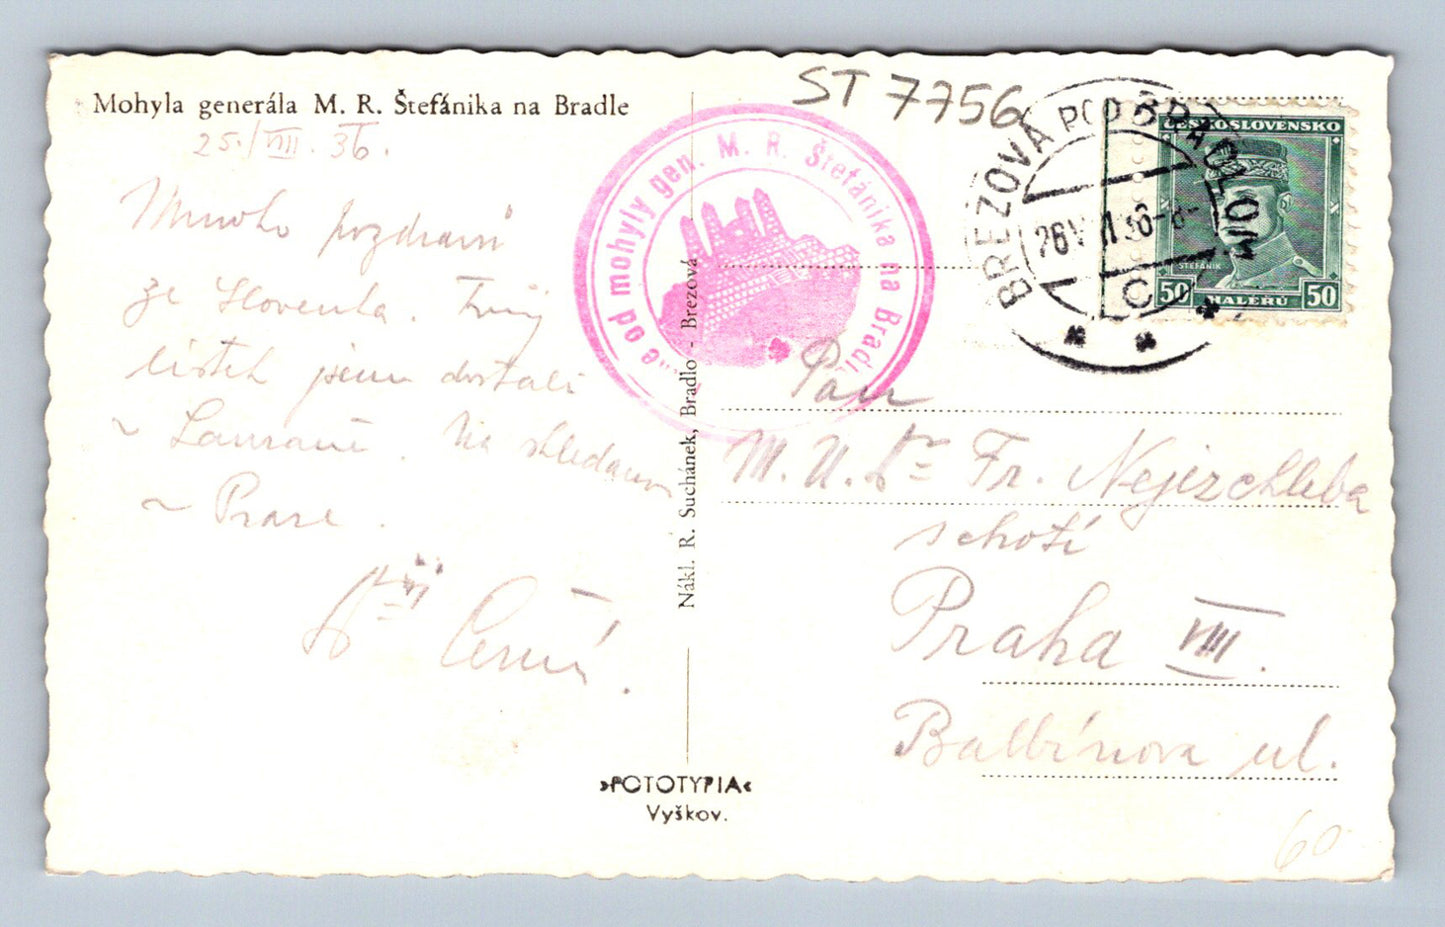 Mohyla generála M. R. Štefánika na Bradle
25./VIII. 36.
Mnoho pozdravů
ze Slovenska. Tvůj
lístek jsem dostali
v Lausanně. Na shledanou
v Praze.
Černý.
ST 7756
od mohyly gen. M. R. Štefánika na Bradle
BREZOVÁ POD BRADLOM
ČESKOSLOVENSKO
ŠTEFÁNIK
50 HALÉRŮ 50
Nákl. R. Suchánek, Bradlo - Brezová
Pan
M. U. Dr Fr. Nejezchleba
Praha VIII.
Balbínova ul.
»FOTOTYPIA«
Vyškov.
60